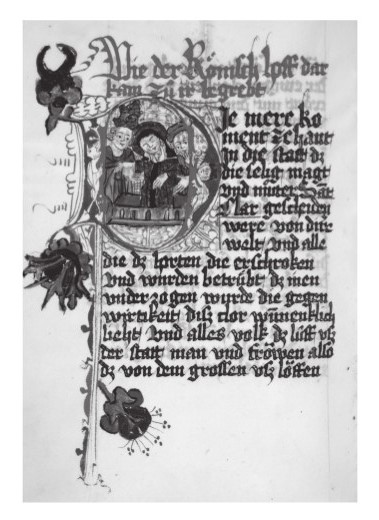 Wie der Römisch hoff dar
kam zů ir begrebt
Je mere ko
ment zehant
jn die statt dz
die selig magt
vnd můter Sāt
Clar gescheiden
were von dirr
welt vnd alle
die dz horten die erschroken
vnd wurden betrůbt dz men
vnder zogen wurde die gegen
wirtikeit disz clor wūnenklich
lieht vnd alles volk dz lüff vsz
der statt man vnd fröwen also
dz von dem grossen vsz löffen